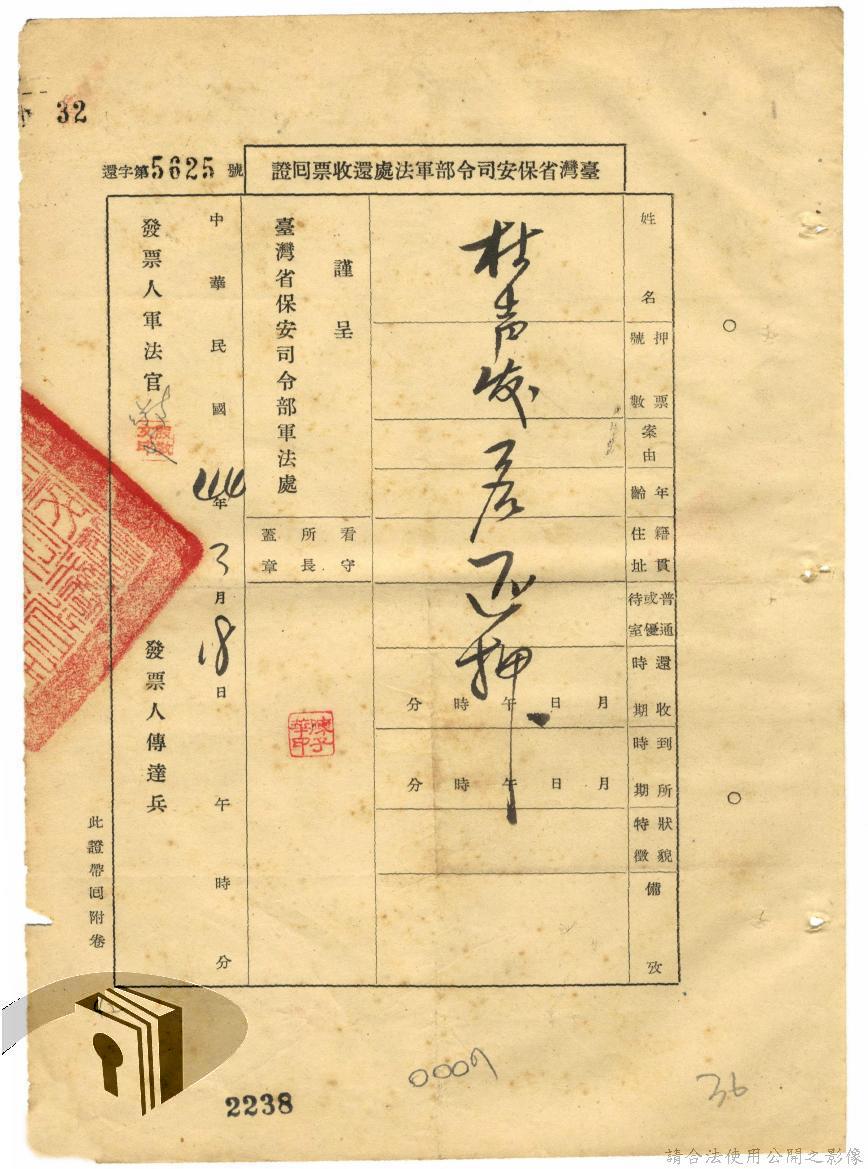 32
還字第5625號
臺灣省保安司令部軍法處還收票回證
姓名
押票號數
案由
年齡
籍貫住址
普通或優待室
還收時期
到所時期
狀貌特徵
備攷
杜声发
还押
月日午時分
月日午時分
謹呈
臺灣省保安司令部軍法處
看守所長蓋章
陳子華印
中華民國44年3月18日午時分
發票人軍法官
發票人傳達兵
此證帶回附卷
2238
0009
36
請合法使用公開之影像